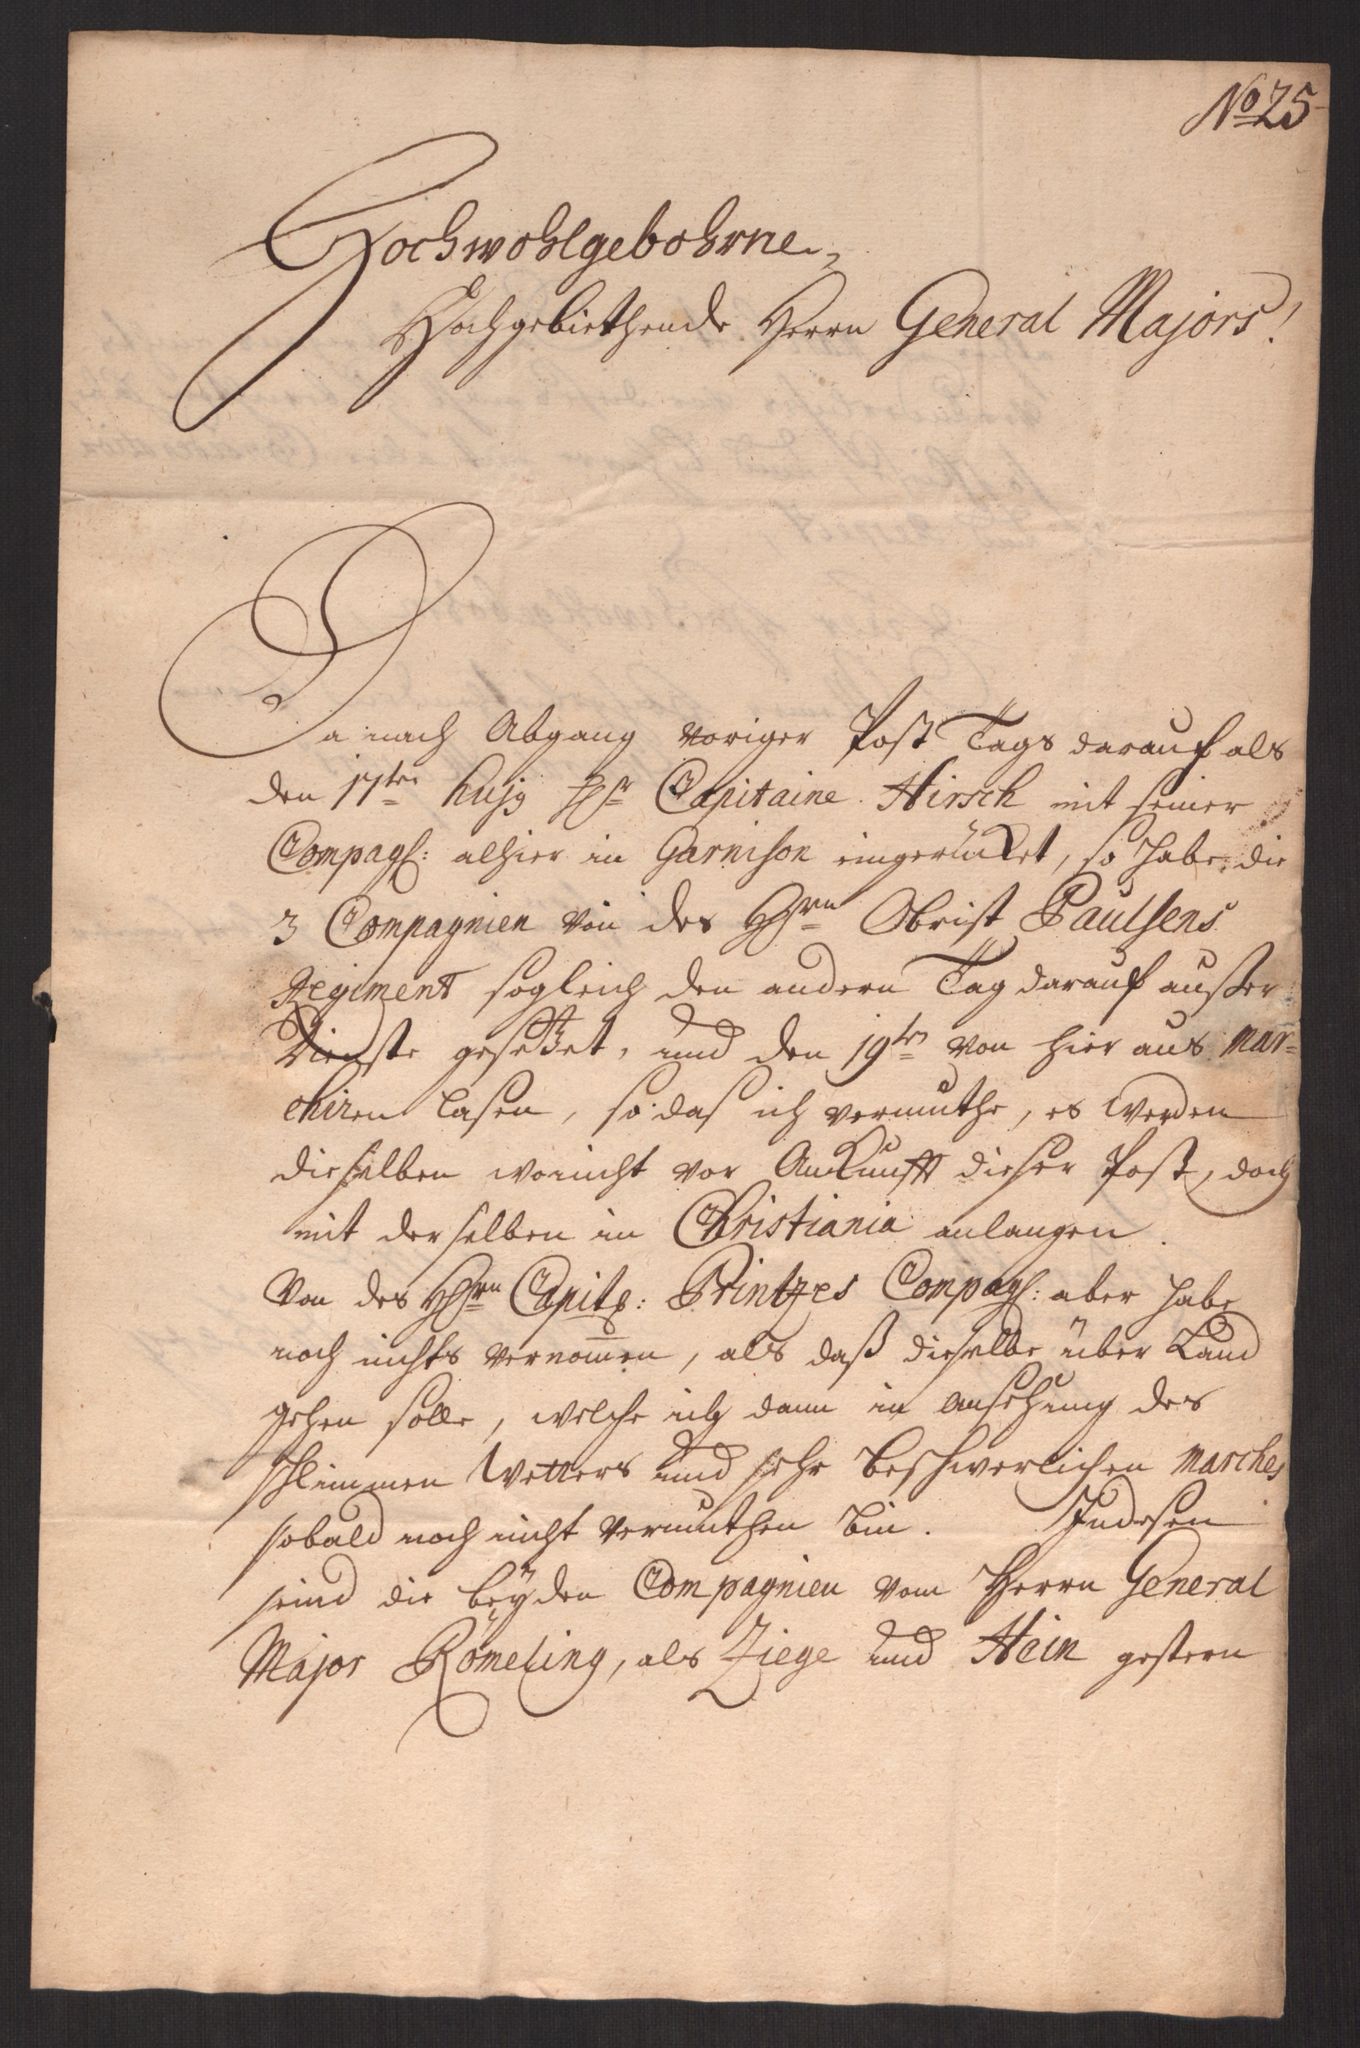 No 25
Hochwohlgebohrne,
Hochgebiethende Herrn General Majors!
Da nach Abgang voriger Post Tags darauf als
den 17ten hujg Hr Capitaine Hirsch mit seiner
Compag: alhier in Garnison eingerücket, so habe die
3 Compagnien von des Hrn Obrist Paulsens
Regiment sogleich den andern Tag darauf außer
Dienste gesetzet, und den 19ten von hier aus mar-
chiren lasen, so das ich vermuthe, es werden
dieselben wo nicht vor Ankunfft dieser Post, doch
mit derselben in Christiania anlangen.
Von des Hrn Capit: Printzes Compag: aber habe
noch nichts vernomen, als daß dieselbe über Land
gehen solle, welche ich dann in Ansehung des
schlimmen Wetters und sehr beschwerlichen Marches
sobald noch nicht vermuthen bin. Indesen
seind die beyden Compagnien vom Herrn General
Major Römeling, als Ziege und Hein gestern